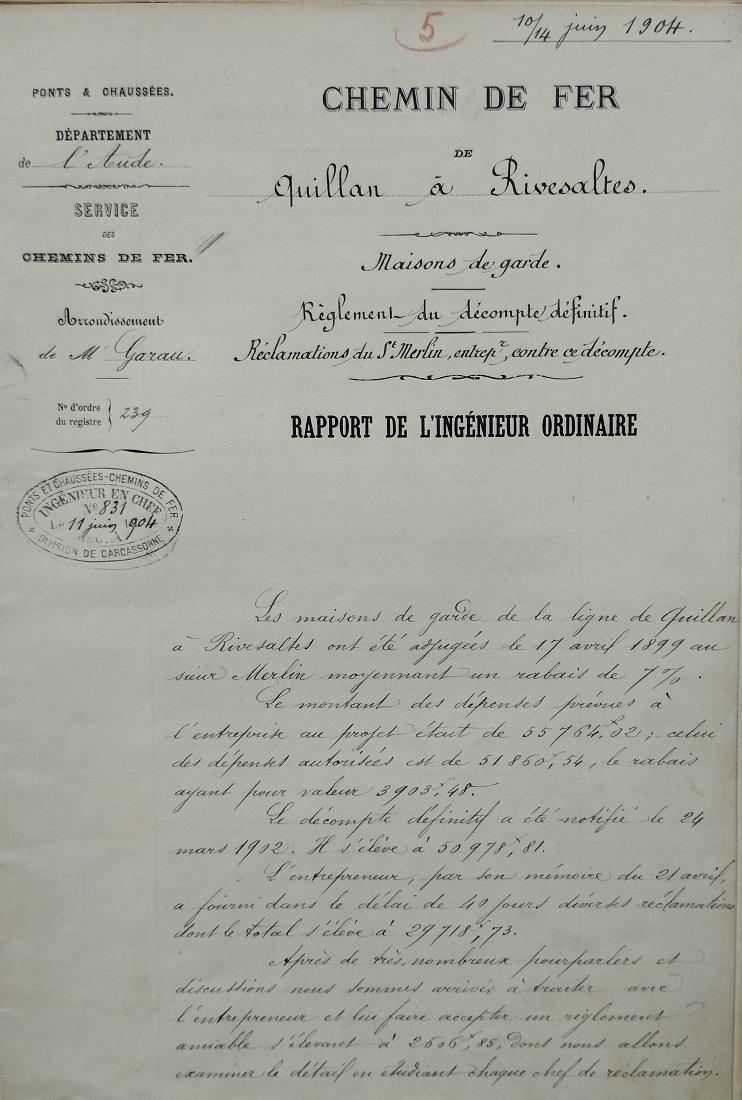 5
10/14 juin 1904.
PONTS & CHAUSSÉES.
DÉPARTEMENT
de l'Aude.
SERVICE
DES
CHEMINS DE FER.
Arrondissement
de Mr Garau.
No d'ordre
du registre 239
PONTS ET CHAUSSÉES-CHEMINS DE FER
INGÉNIEUR EN CHEF
No 831
Le 11 juin 1904
DIVISION DE CARCASSONNE
CHEMIN DE FER
DE
Quillan à Rivesaltes.
Maisons de garde.
Règlement du décompte définitif.
Réclamations du St Merlin, entrepr, contre ce décompte.
RAPPORT DE L'INGÉNIEUR ORDINAIRE
Les maisons de garde de la ligne de Quillan
à Rivesaltes ont été adjugées le 17 avril 1899 au
sieur Merlin moyennant un rabais de 7%.
Le montant des dépenses prévues à
l'entreprise au projet était de 55764f,02; celui
des dépenses autorisées est de 51860f,54, le rabais
ayant pour valeur 3903f,48.
Le décompte définitif a été notifié le 24
mars 1902. Il s'élève à 50978f,81.
L'entrepreneur, par son mémoire du 21 avril,
a fourni dans le délai de 40 jours diverses réclamations
dont le total s'élève à 29718f,73.
Après de très nombreux pourparlers et
discussions nous sommes arrivés à traiter avec
l'entrepreneur et lui faire accepter un règlement
amiable s'élevant à 2606f,85, dont nous allons
examiner le détail en étudiant chaque chef de réclamation.